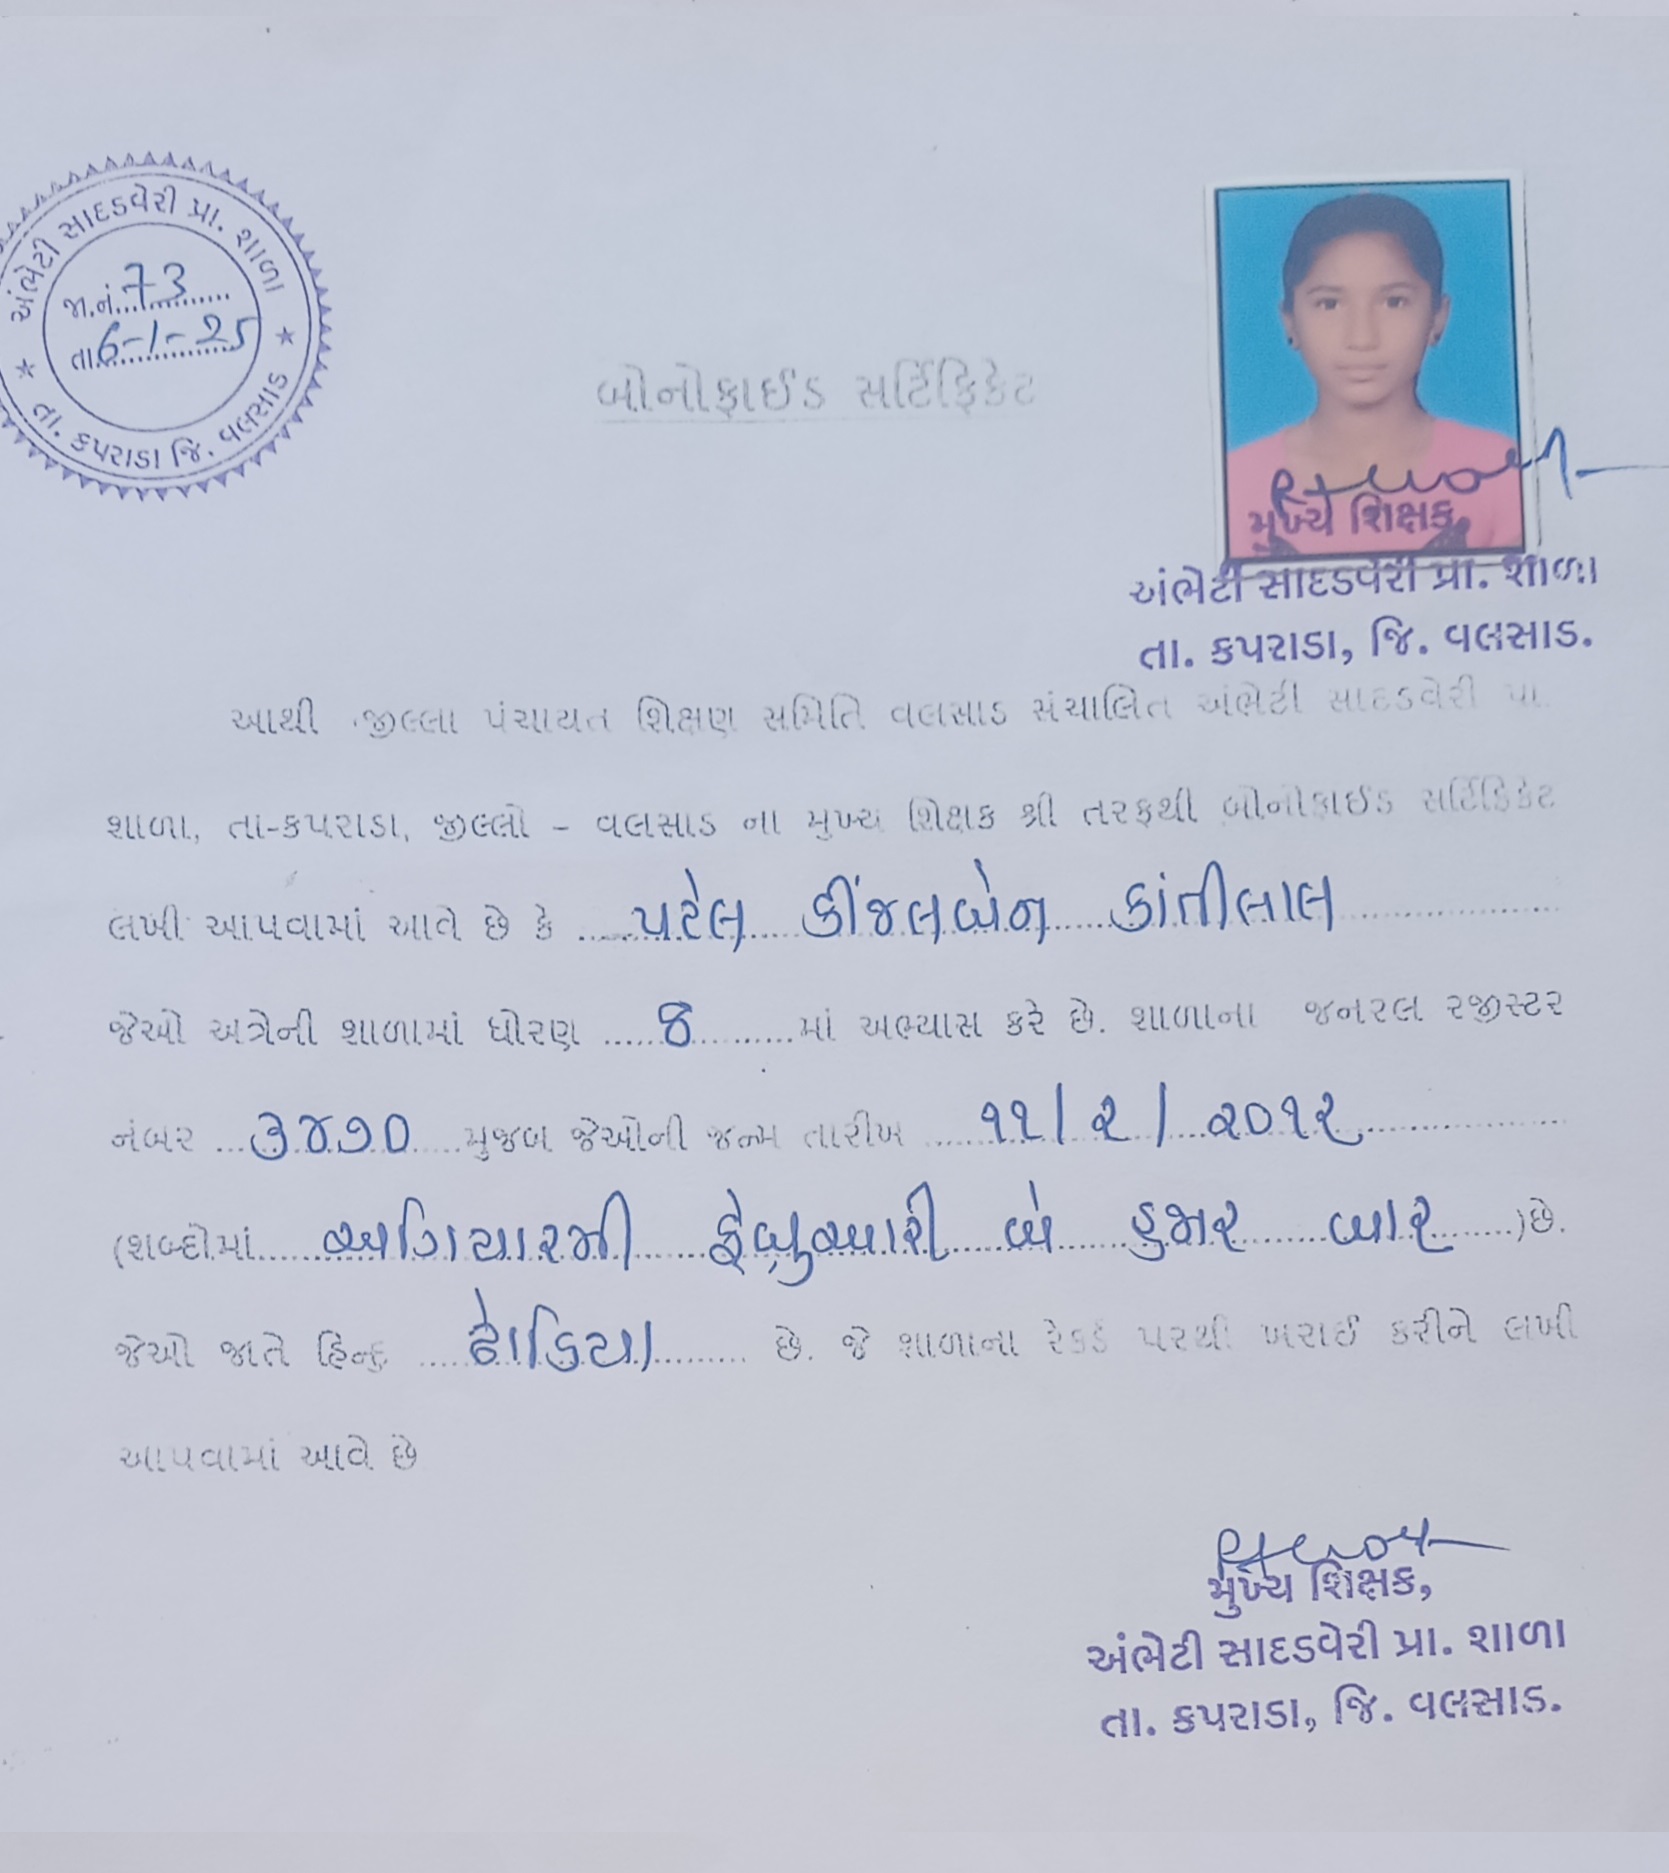 અંભેટી સાદડવેરી પ્રા. શાળા
જા.નં. 73
તા. 6-1-25
તા. કપરાડા જિ. વલસાડ
બોનોફાઈડ સર્ટિફિકેટ
મુખ્ય શિક્ષક,
અંભેટી સાદડવેરી પ્રા. શાળા
તા. કપરાડા, જિ. વલસાડ.
આથી જીલ્લા પંચાયત શિક્ષણ સમિતિ વલસાડ સંચાલિત અંભેટી સાદડવેરી પ્રા.
શાળા, તા-કપરાડા, જીલ્લો – વલસાડ ના મુખ્ય શિક્ષક શ્રી તરફથી બોનોફાઈડ સર્ટિફિકેટ
લખી આપવામાં આવે છે કે ......પટેલ......કીંજલબેન......કાંતીલાલ..................
જેઓ અત્રેની શાળામાં ધોરણ ......8..........માં અભ્યાસ કરે છે. શાળાના જનરલ રજીસ્ટર
નંબર ...૩૪૭૦.....મુજબ જેઓની જન્મ તારીખ ......૧૧/૨/૨૦૧૨..................
(શબ્દોમાં......અગિયારમી......ફેબ્રુઆરી......બે......હજાર......બાર......)છે.
જેઓ જાતે હિન્દુ ......ઢોડિયા......... છે. જે શાળાના રેકર્ડ પરથી ખરાઈ કરીને લખી
આપવામાં આવે છે
મુખ્ય શિક્ષક,
અંભેટી સાદડવેરી પ્રા. શાળા
તા. કપરાડા, જિ. વલસાડ.